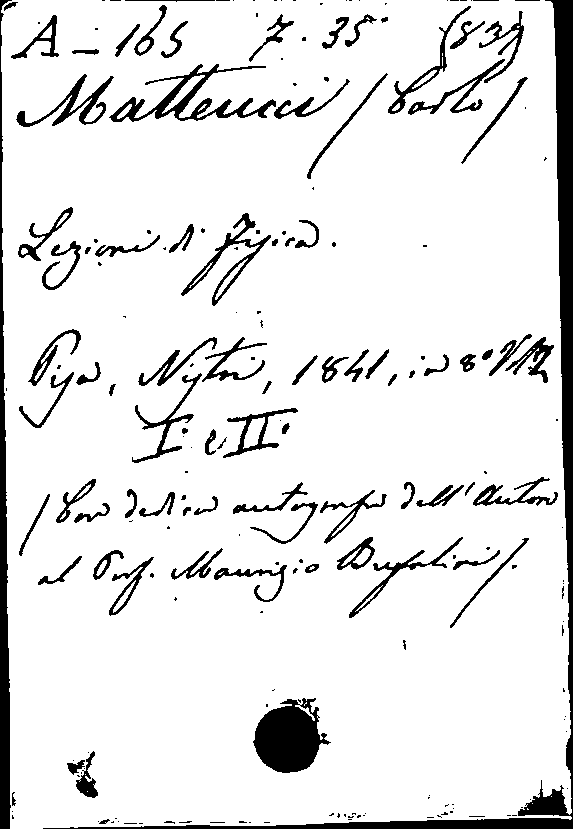 A - 165 7. 35° (839)
Matteucci (Carlo)
Lezioni di Fisica.
Pisa, Nistri, 1841, in 8° Vol.
I° e II°
(Con dedica autografa dell'Autore
al Prof. Maurizio Bufalini).